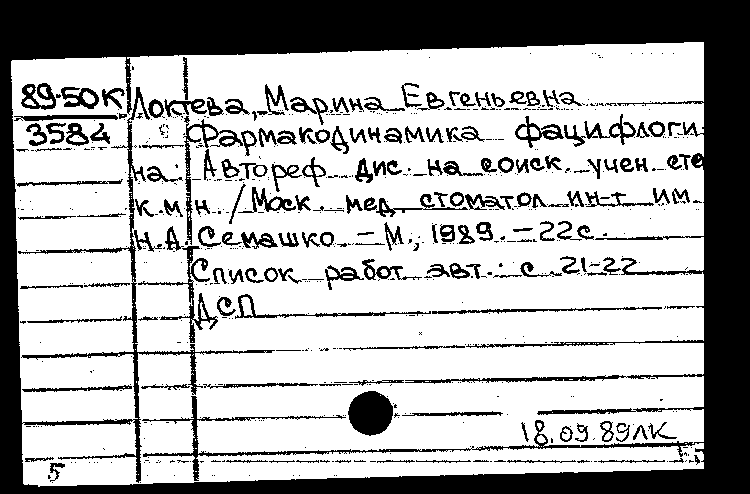 89-50К Локтева, Марина Евгеньевна
3584 Фармакодинамика фацифлоги-
на: Автореф. дис. на соиск. учен. сте
к.м.н. / Моск. мед. стоматол ин-т им.
Н.А. Семашко. – М., 1989. – 22с.
Список работ авт.: с. 21-22
ДСП
18.09.89ЛК
5